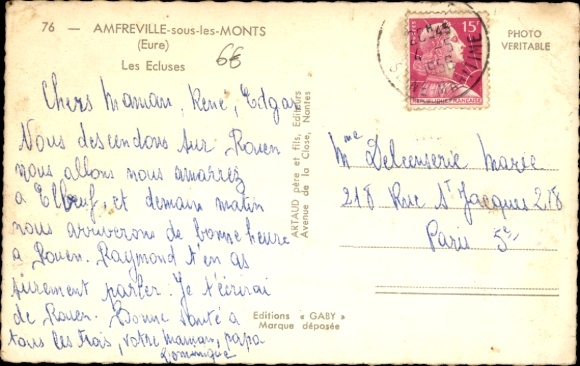 76 — AMFREVILLE-sous-les-MONTS
(Eure)
Les Ecluses
6€
PHOTO
VERITABLE
15f
REPUBLIQUE FRANÇAISE
Chers Maman, René, Edgar
Nous descendons sur Rouen
nous allons nous amarrez
a Elbeuf, et demain matin
nous arriverons de bonne heure
a Rouen. Raymond t'en as
surement parler. Je t'écrirai
de Rouen. Bonne Santé a
tous les trois, votre maman, papa
Dominique
ARTAUD père et fils, Editeurs
Avenue de la Close, Nantes
Mme Delcenserie Marie
218 Rue St Jacques 218
Paris 5e
Editions « GABY »
Marque déposée